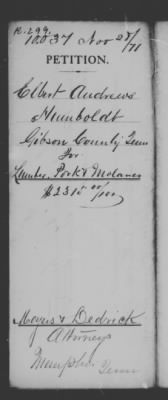 R. 299.
10037 Nov 28/71
PETITION.
Elbert Andrews
Humboldt
Gibson County Tenn
For
Lumber, Pork & Molasses
$2315 00/100
Meyers & Dedrick
Attorneys
Memphis Tenn